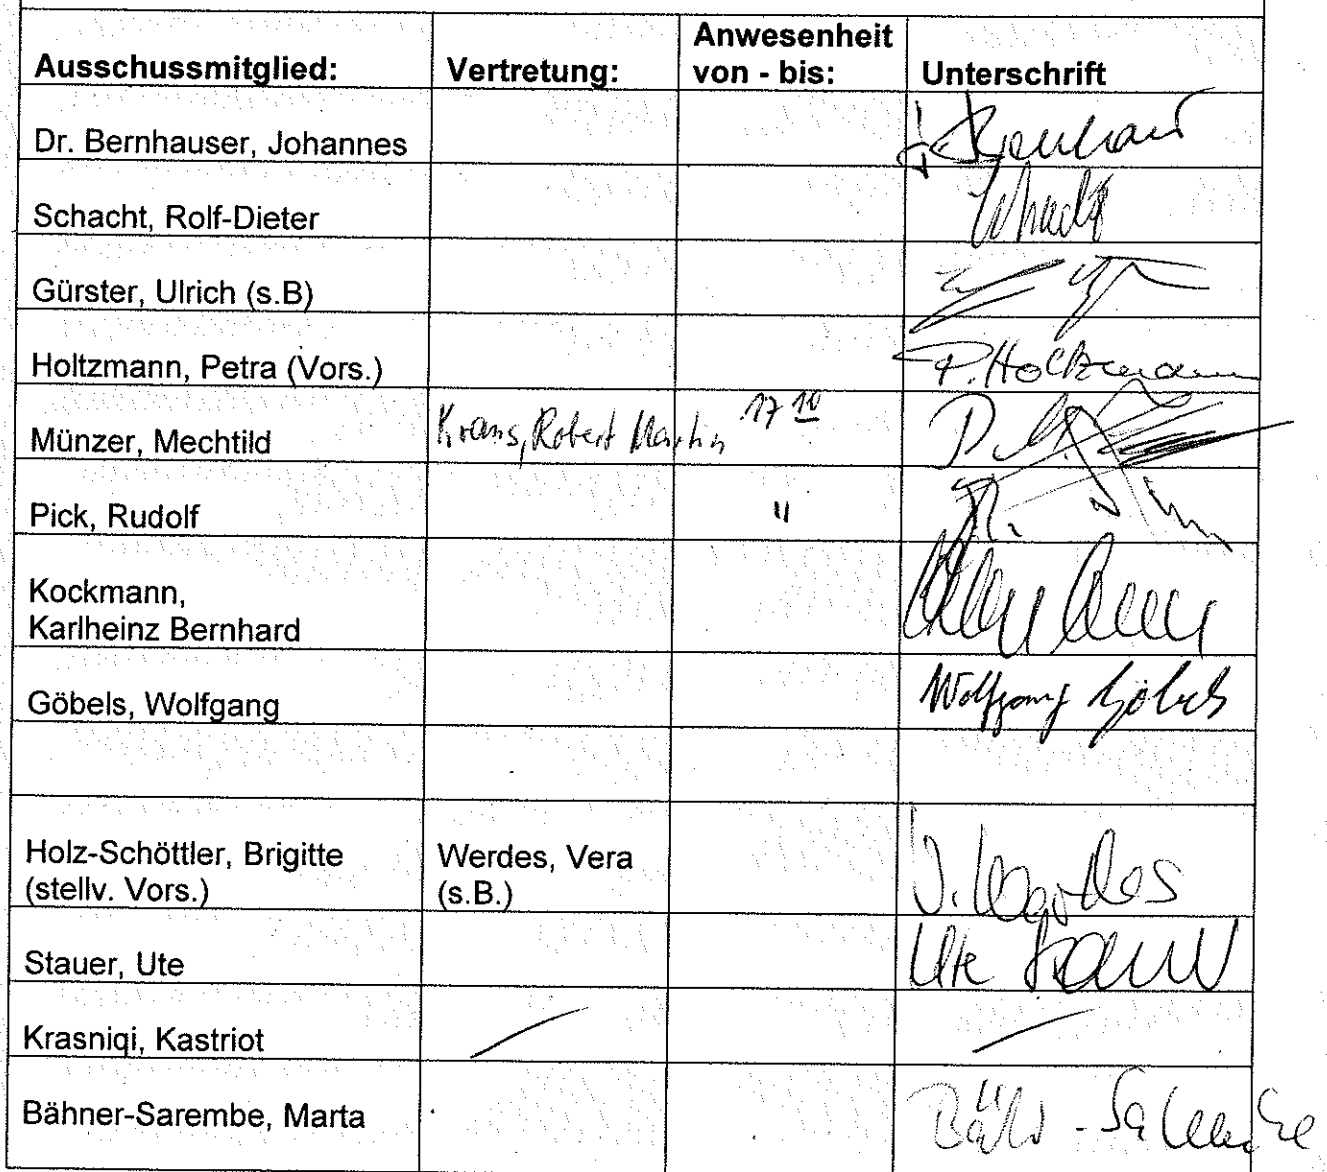 Ausschussmitglied: Vertretung: Anwesenheit von - bis: Unterschrift
Dr. Bernhauser, Johannes
Schacht, Rolf-Dieter
Gürster, Ulrich (s.B)
Holtzmann, Petra (Vors.) P. Holtzmann
Münzer, Mechtild Robert Martin 17 10
Pick, Rudolf "
Kockmann,
Karlheinz Bernhard
Göbels, Wolfgang Wolfgang Göbels
Holz-Schöttler, Brigitte Werdes, Vera
(stellv. Vors.) (s.B.) V. Werdes
Stauer, Ute Ute Stauer
Krasniqi, Kastriot
Bähner-Sarembe, Marta